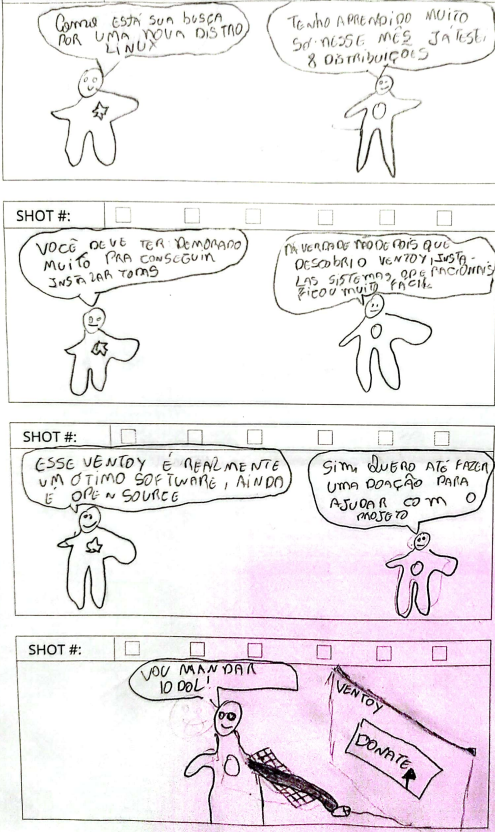 Como ESTÁ SUA BUSCA
POR UMA NOVA DISTRO
LINUX
TENHO APRENDIDO MUITO
SÓ NESSE MÊS JÁ TESTEI
8 DISTRIBUIÇÕES
SHOT #:
VOCÊ DEVE TER DEMORADO
MUITO PRA CONSEGUIR
INSTALAR TODAS
NA VERDADE NÃO DEPOIS QUE
DESCOBRI O VENTOY, INSTA-
LAS SISTEMAS OPERACIONAIS
FICOU MUITO FACIL
SHOT #:
ESSE VENTOY É REALMENTE
UM ÓTIMO SOFTWARE, AINDA
É OPEN SOURCE
SIM, QUERO ATÉ FAZER
UMA DOAÇÃO PARA
AJUDAR COM O
PROJETO
SHOT #:
VOU MANDAR
10 DOL!
VENTOY
DONATE